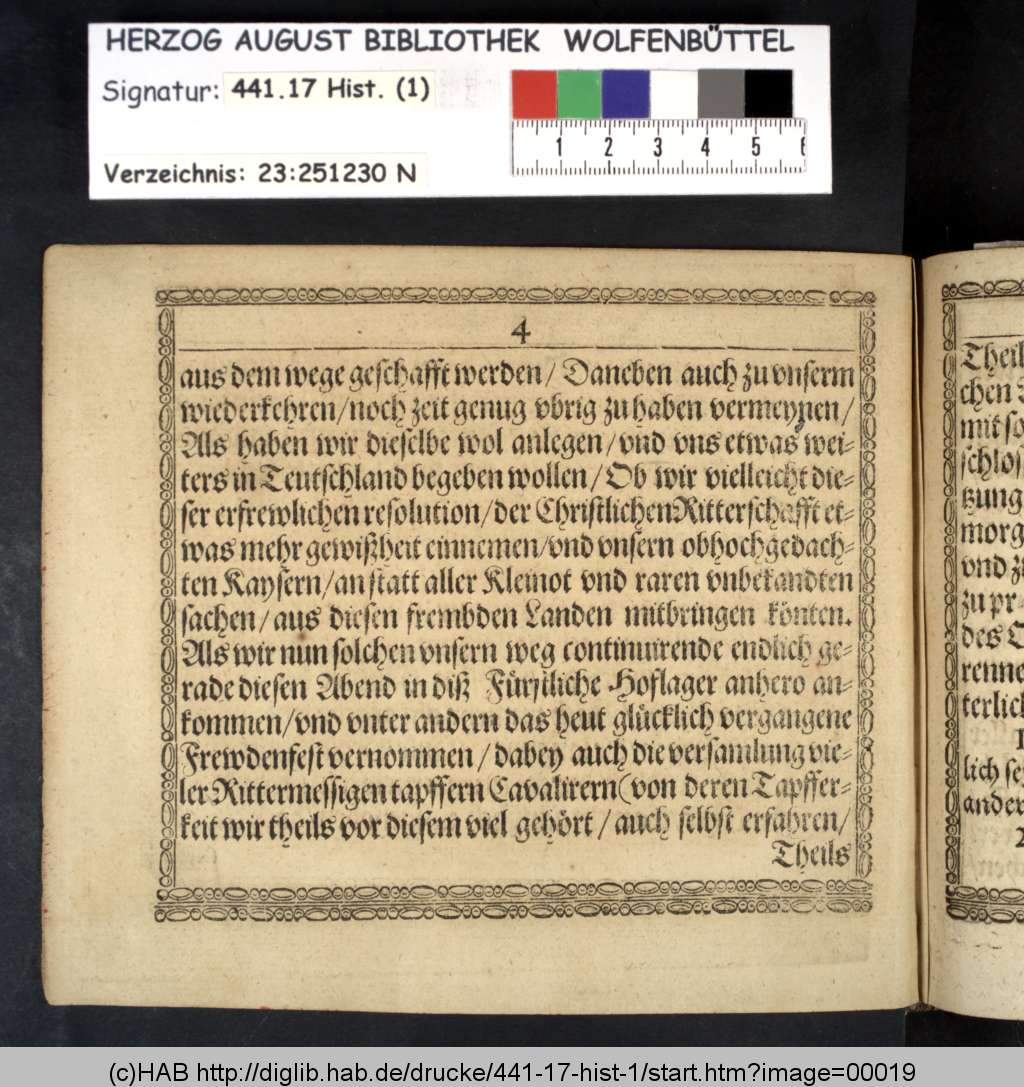 HERZOG AUGUST BIBLIOTHEK WOLFENBÜTTEL
Signatur: 441.17 Hist. (1)
1 2 3 4 5 6
Verzeichnis: 23:251230 N
4
aus dem wege geschafft werden / Daneben auch zu vnserm
wiederkehren / noch zeit genug vbrig zu haben vermeynen /
Als haben wir dieselbe wol anlegen / vnd vns etwas wei-
ters in Teutschland begeben wollen / Ob wir vielleicht die-
ser erfrewlichen resolution / der Christlichen Ritterschafft et-
was mehr gewißheit einnemen / vnd vnsern obhochgedach-
ten Kaysern / an statt aller Kleinot vnd raren vnbekandten
sachen / aus diesen frembden Landen mitbringen könten.
Als wir nun solchen vnsern weg continuirende endlich ge-
rade diesen Abend in diß Fürstliche Hoflager anhero an-
kommen / vnd vnter andern das heut glücklich vergangene
Frewdenfest vernommen / dabey auch die versamlung vie-
ler Rittermessigen tapffern Cavalirern (von deren Tapffer-
keit wir theils vor diesem viel gehört / auch selbst erfahren /
Theils
Theil
chen
mit so
schlos
tzung
morg
vnd z
zu pr
des
renne
terlich
1
lich se
ander
2
(c)HAB http://diglib.hab.de/drucke/441-17-hist-1/start.htm?image=00019